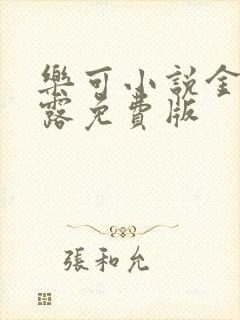 樂可小說金
露免費版
張和允